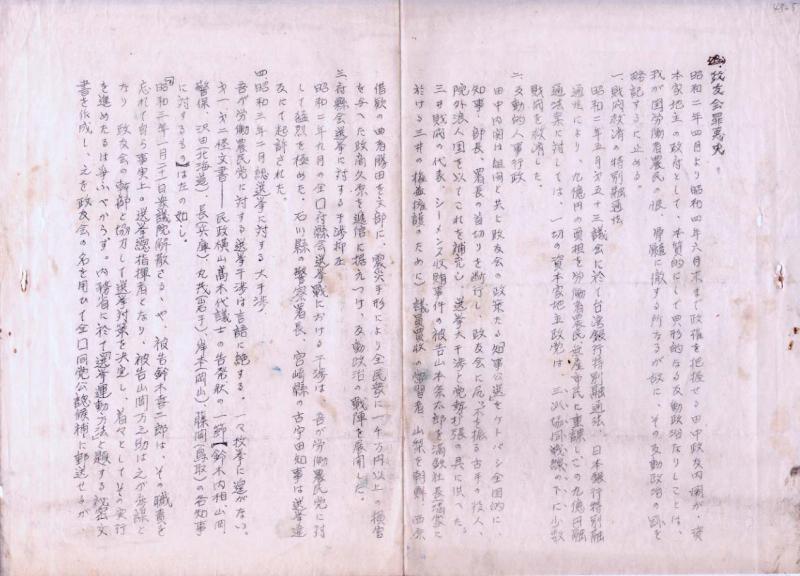 政友会罪悪史
昭和二年四月より昭和四年六月末まで政権を把握せる田中政友内閣が、資
本家地主の政府として、本質的にして典形的なる反動政治なりしことは、
我が国労働者農民の恨、骨髄に徹する所なるが故に、その反動政治の跡を
略記するに止める。
一、財閥救済の特別融通法
昭和二年五月 第五十三議会に於て台湾銀行特別融通法、日本銀行特別融
通法により、九億円の負担を労働者農民無産市民に重課しこの九億円融
通法案に対しては、一切の資本家地主政党は、三派協同戦線の下に少数
財閥を救済した。
二、反動的人事行政
田中内閣は組閣と共に政友会の政策たる知事公選をケトバシ全国的に、
知事、部長、署長の首切りを断行し、政友会に尻尾を振る古手の役人、
院外浪人団を以てこれを補充し、選挙大干渉と党勢拡張の具に供へた。
三井財閥の代表、シーメンス収賄事件の被告山本条太郎を満鉄社長満蒙に
於ける三井の権益擁護のために）議員買収の常習者、山梨を朝鮮、西原
借款の曲者勝田を文部に、震災手形により全民衆に一千万円以上の損害
を与へた政商久原を逓信に据えつけ、反動政治の戦陣を展開した。
三、府縣会選挙に対する干渉抑圧
昭和二年九月の全国府縣会選挙戦における干渉は、吾が労働農民党に対
して猛烈を極めた。石川縣の警察署長、宮崎縣の古宇田知事は選挙違
反にて起訴された。
四、昭和三年二月総選挙に対する大干渉、
吾が労働農民党に対する選挙干渉は言語に絶する。一々枚挙に遑がない。
第一、第二怪文書――民政横山高木代議士の告発状の一節【鈴木内相、山岡
警保、沢田（北海道）、長（兵庫）、丸茂（岩手）、岸本（岡山）、藤岡（鳥取）の各知事
に対するもの】はたの如し。
「昭和三年一月二十一日衆議院解散さるゝや、被告鈴木喜三郎は、その職責を
忘れて自ら事実上の選挙総指揮者となり、被告山岡万之助は之が参謀と
なり 政友会の幹部と協力して選挙対策を決定し、着々としてその実行
を進めたるは争ふべからず。内務省に於て「選挙運動方法」と題する秘密文
書を作成し、之を政友会の名を用ひて全国同党公認候補に郵送せるが、